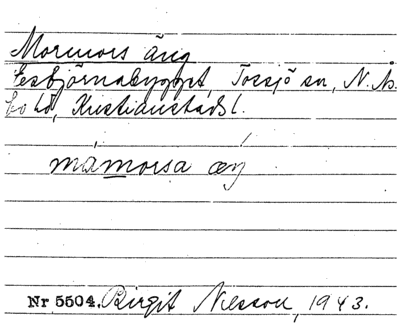 Mormors äng
Esbjörnabygget, Tossjö sn, N. Ås-
bo hd, Kristianstads l.
mámorsa æŋ
Nr 5504. Birgit Nilsson, 1943.